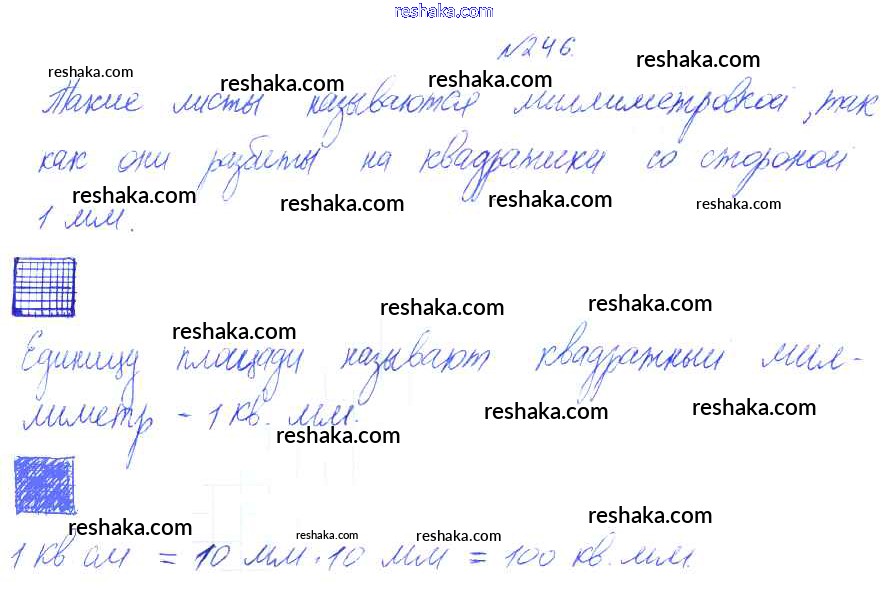 reshaka.com
№246.
reshaka.com reshaka.com reshaka.com reshaka.com
Такие листы называются миллиметровкой, так
как они разбиты на квадратики со стороной
reshaka.com reshaka.com reshaka.com reshaka.com
1 мм.
reshaka.com reshaka.com reshaka.com
Единицу площади называют квадратный мил-
лиметр - 1 кв. мм.
reshaka.com reshaka.com reshaka.com
reshaka.com reshaka.com reshaka.com reshaka.com
1 кв см = 10 мм · 10 мм = 100 кв. мм.